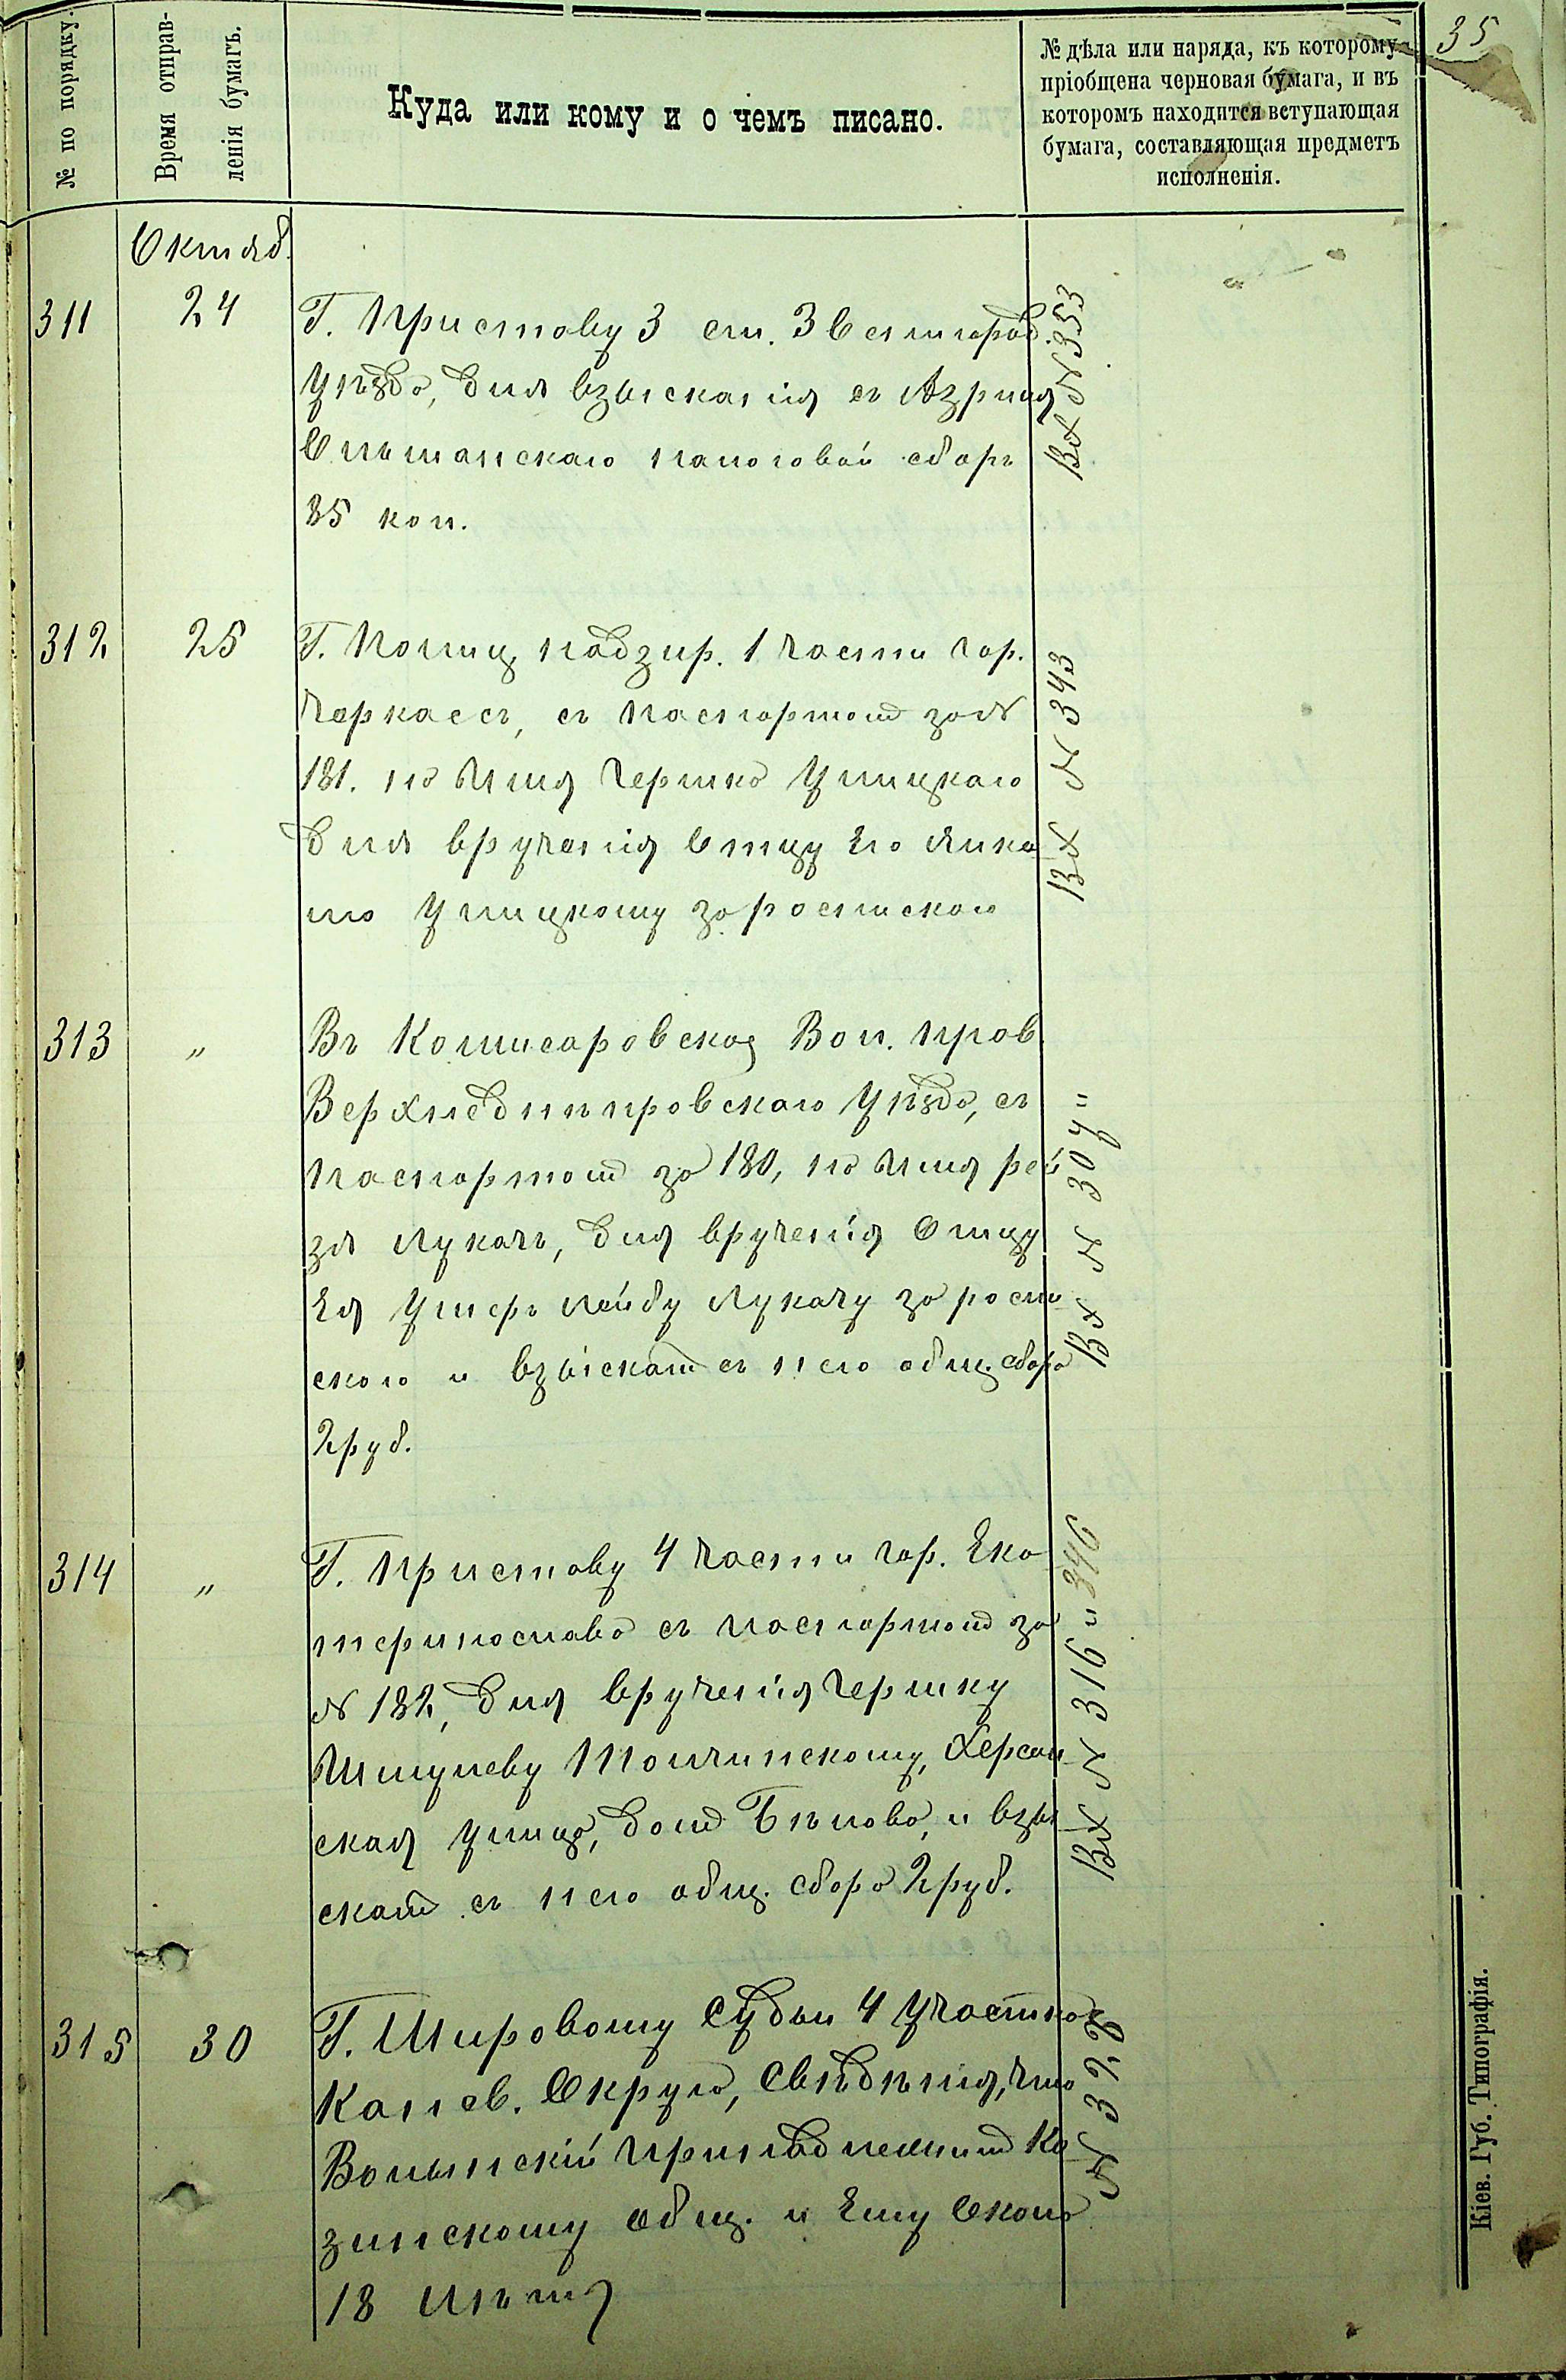 35
№ по порядку.
Время отправ-
ленія бумагъ.
Куда или кому и о чемъ писано.
№ дѣла или наряда, къ которому
пріобщена черновая бумага, и въ
которомъ находится вступающая
бумага, составляющая предметъ
исполненія.
Октяб.
311 24 Г. Приставу 3 ст. Звенигород.
Уѣзда, для взысканія съ Азриля
Ольшанскаго налоговой сборъ
85 коп.
Вх № 353
312 25 Г. Полиц. надзир. 1 части гор.
Черкассъ, съ паспортом за №
181. на имя Гершка Улицкаго
для врученія Отцу Его Янке
лю Улицкому за роспискою
Вх № 343
313 „ Въ Комисаровская Вол. прав.
Верхнеднѣпровскаго Уѣзда, съ
паспортом за 180, на имя рей
зя Лукачъ, для врученія Отцу
Ея Ушеръ Лейбу Лукачу за роспи
скою и взыскат съ него общ. сбора
2 руб.
Вх № 304 "
314 „ Г. Приставу 4 части гор. Ека
теринослава съ паспортом за
№ 182, для врученія Гершку
Шмулеву Толчинскому, Херсон
ская улица, дом Бѣлова, и взы
скат съ него общ. сбора 2 руб.
Вх № 316 " 346
315 30 Г. Мировому Судьи 4 Участка
Канев. Округа, Свѣдѣнія, что
Волынскій принадлежит Ко
зинскому общ. и Ему Около
18 лѣтъ
№ 322
Кіев. Губ. Типографія.